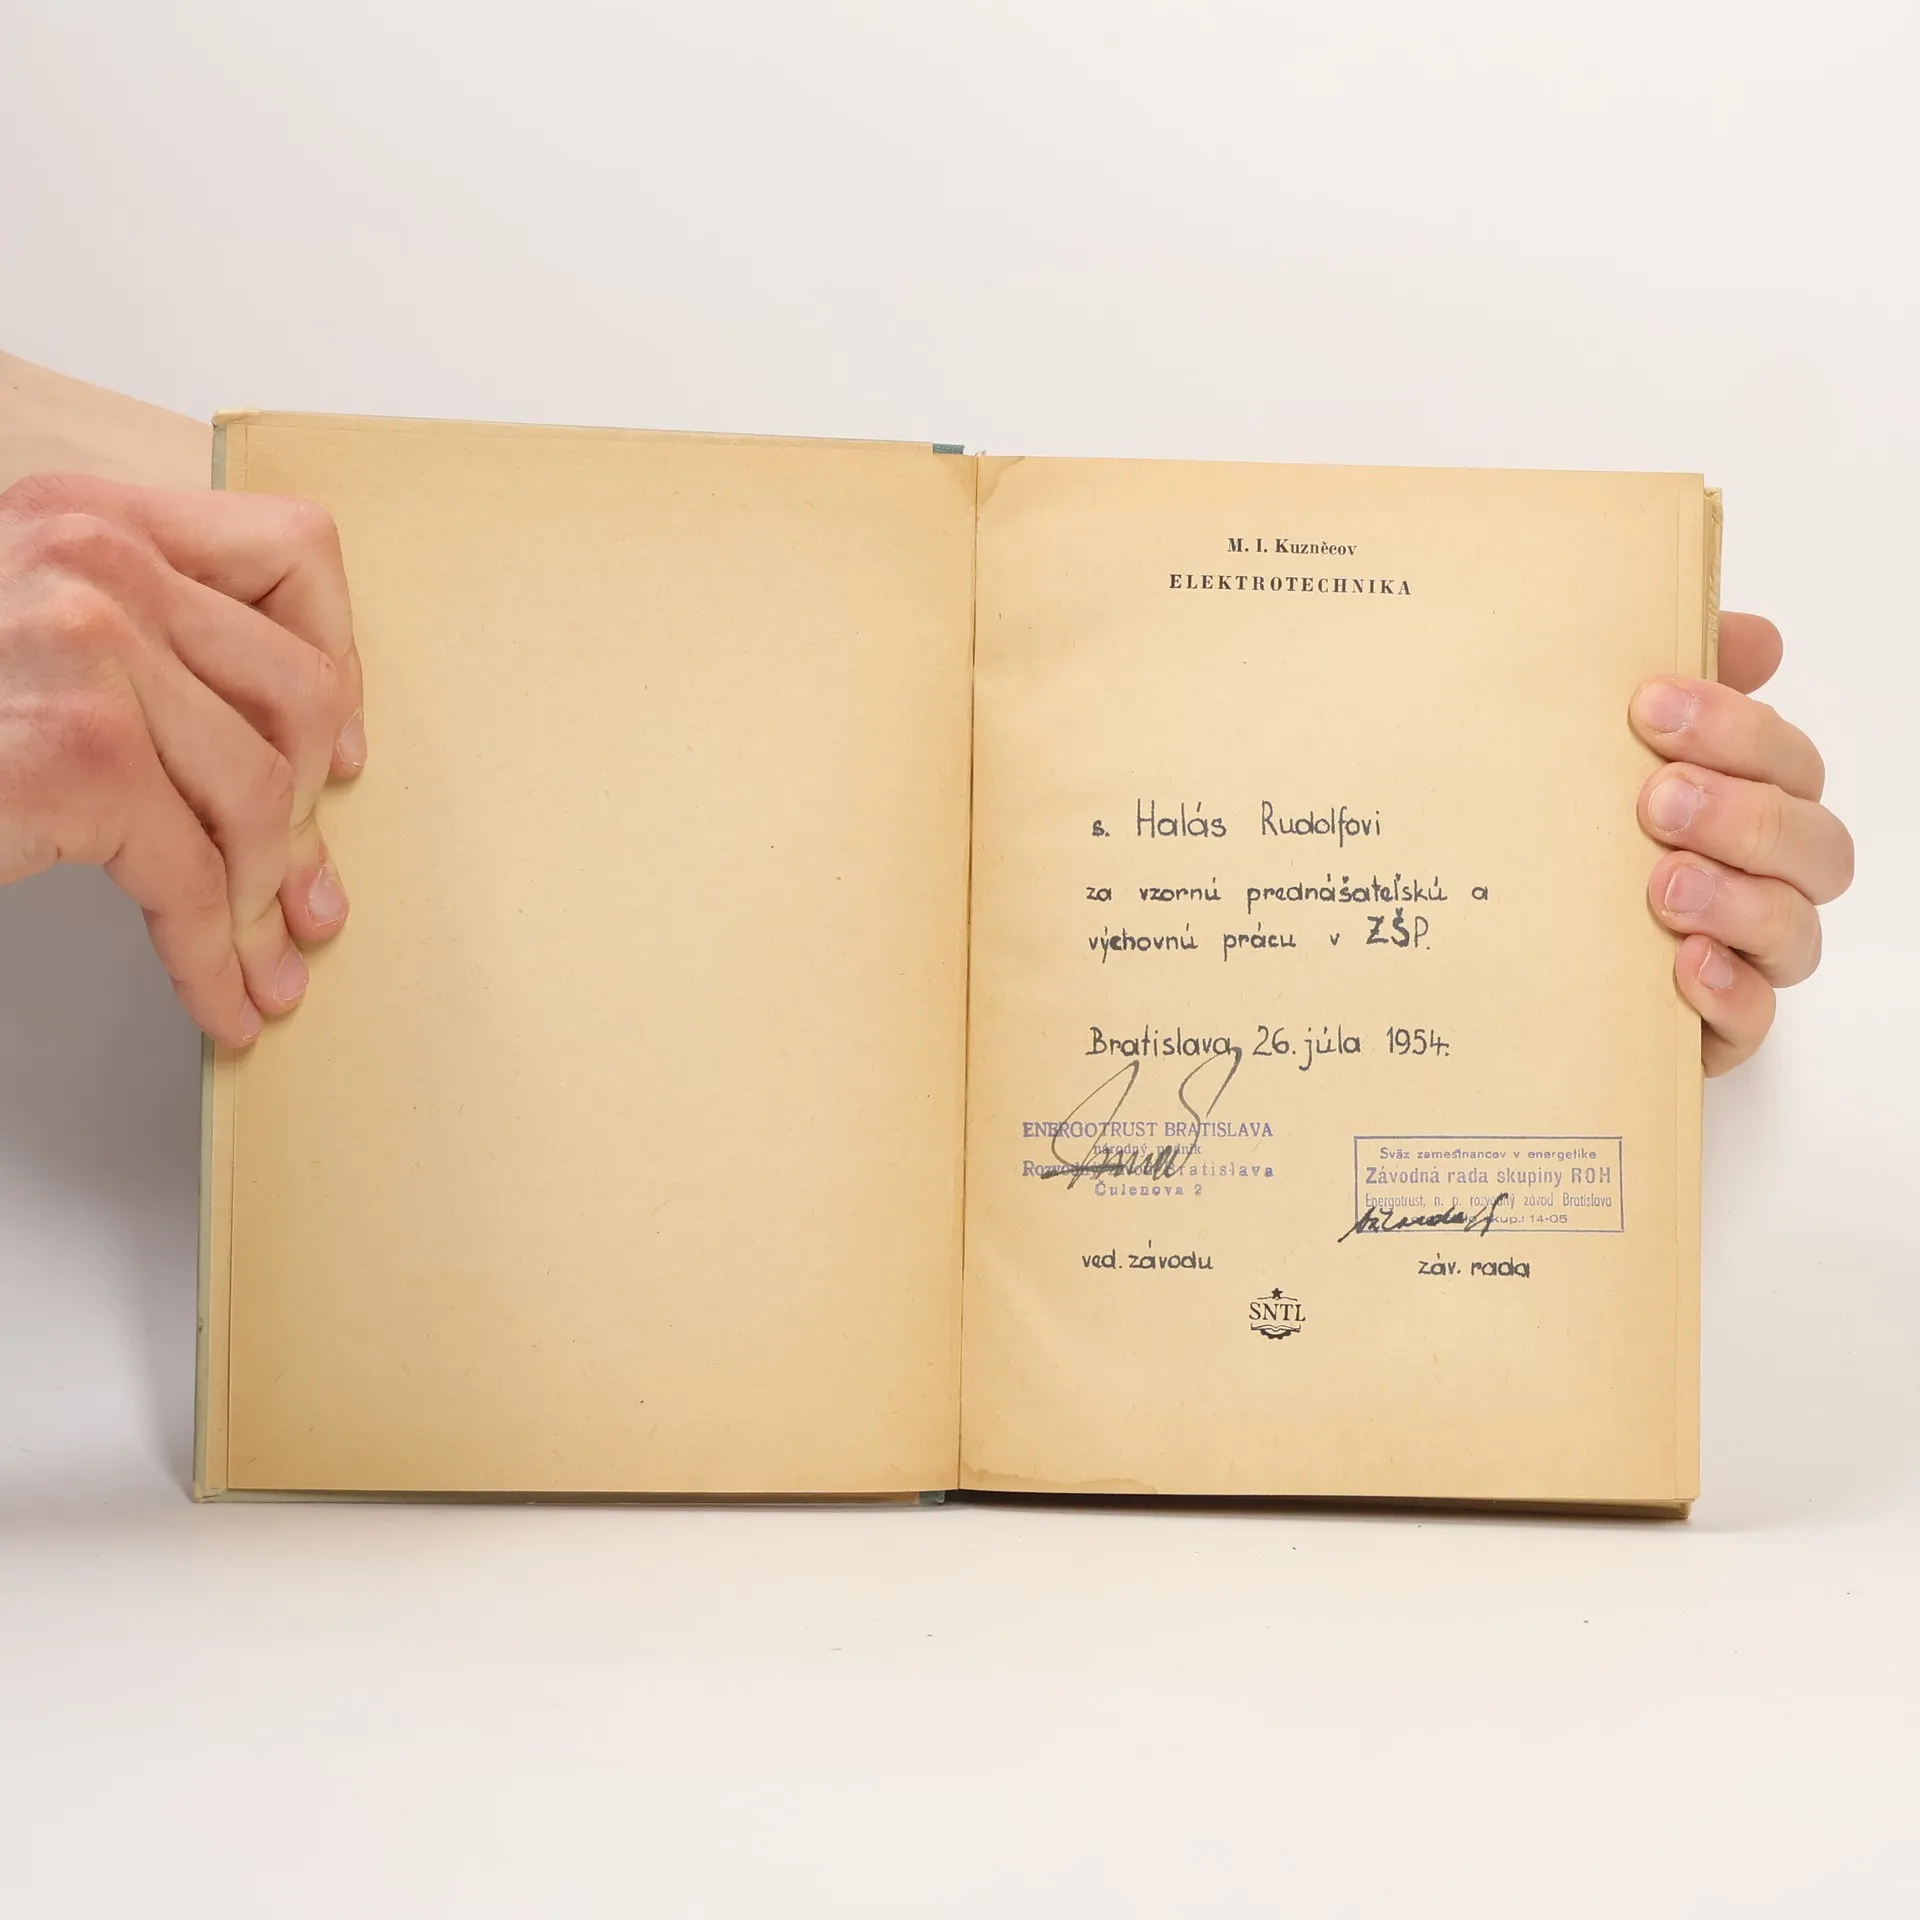 M. I. Kuzněcov
ELEKTROTECHNIKA
s. Halás Rudolfovi
za vzornú prednášateľskú a
výchovnú prácu v ZŠP.
Bratislava, 26. júla 1954.
ENERGOTRUST BRATISLAVA
národný podnik
Rozvodný závod Bratislava
Čulenova 2
Sväz zamestnancov v energetike
Závodná rada skupiny ROH
Energotrust, n. p. rozvodný závod Bratislava
skup.: 14-05
ved. závodu
záv. rada
SNTL